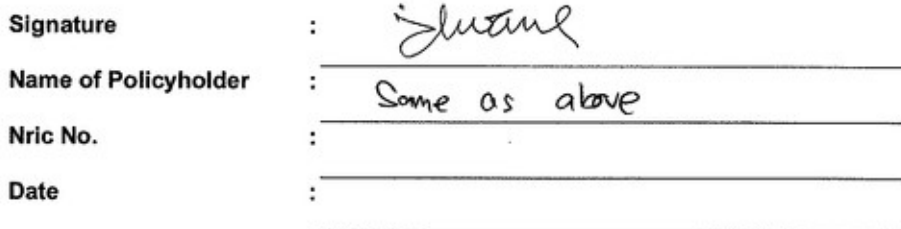 Signature :
Name of Policyholder : Same as above
Nric No. :
Date :